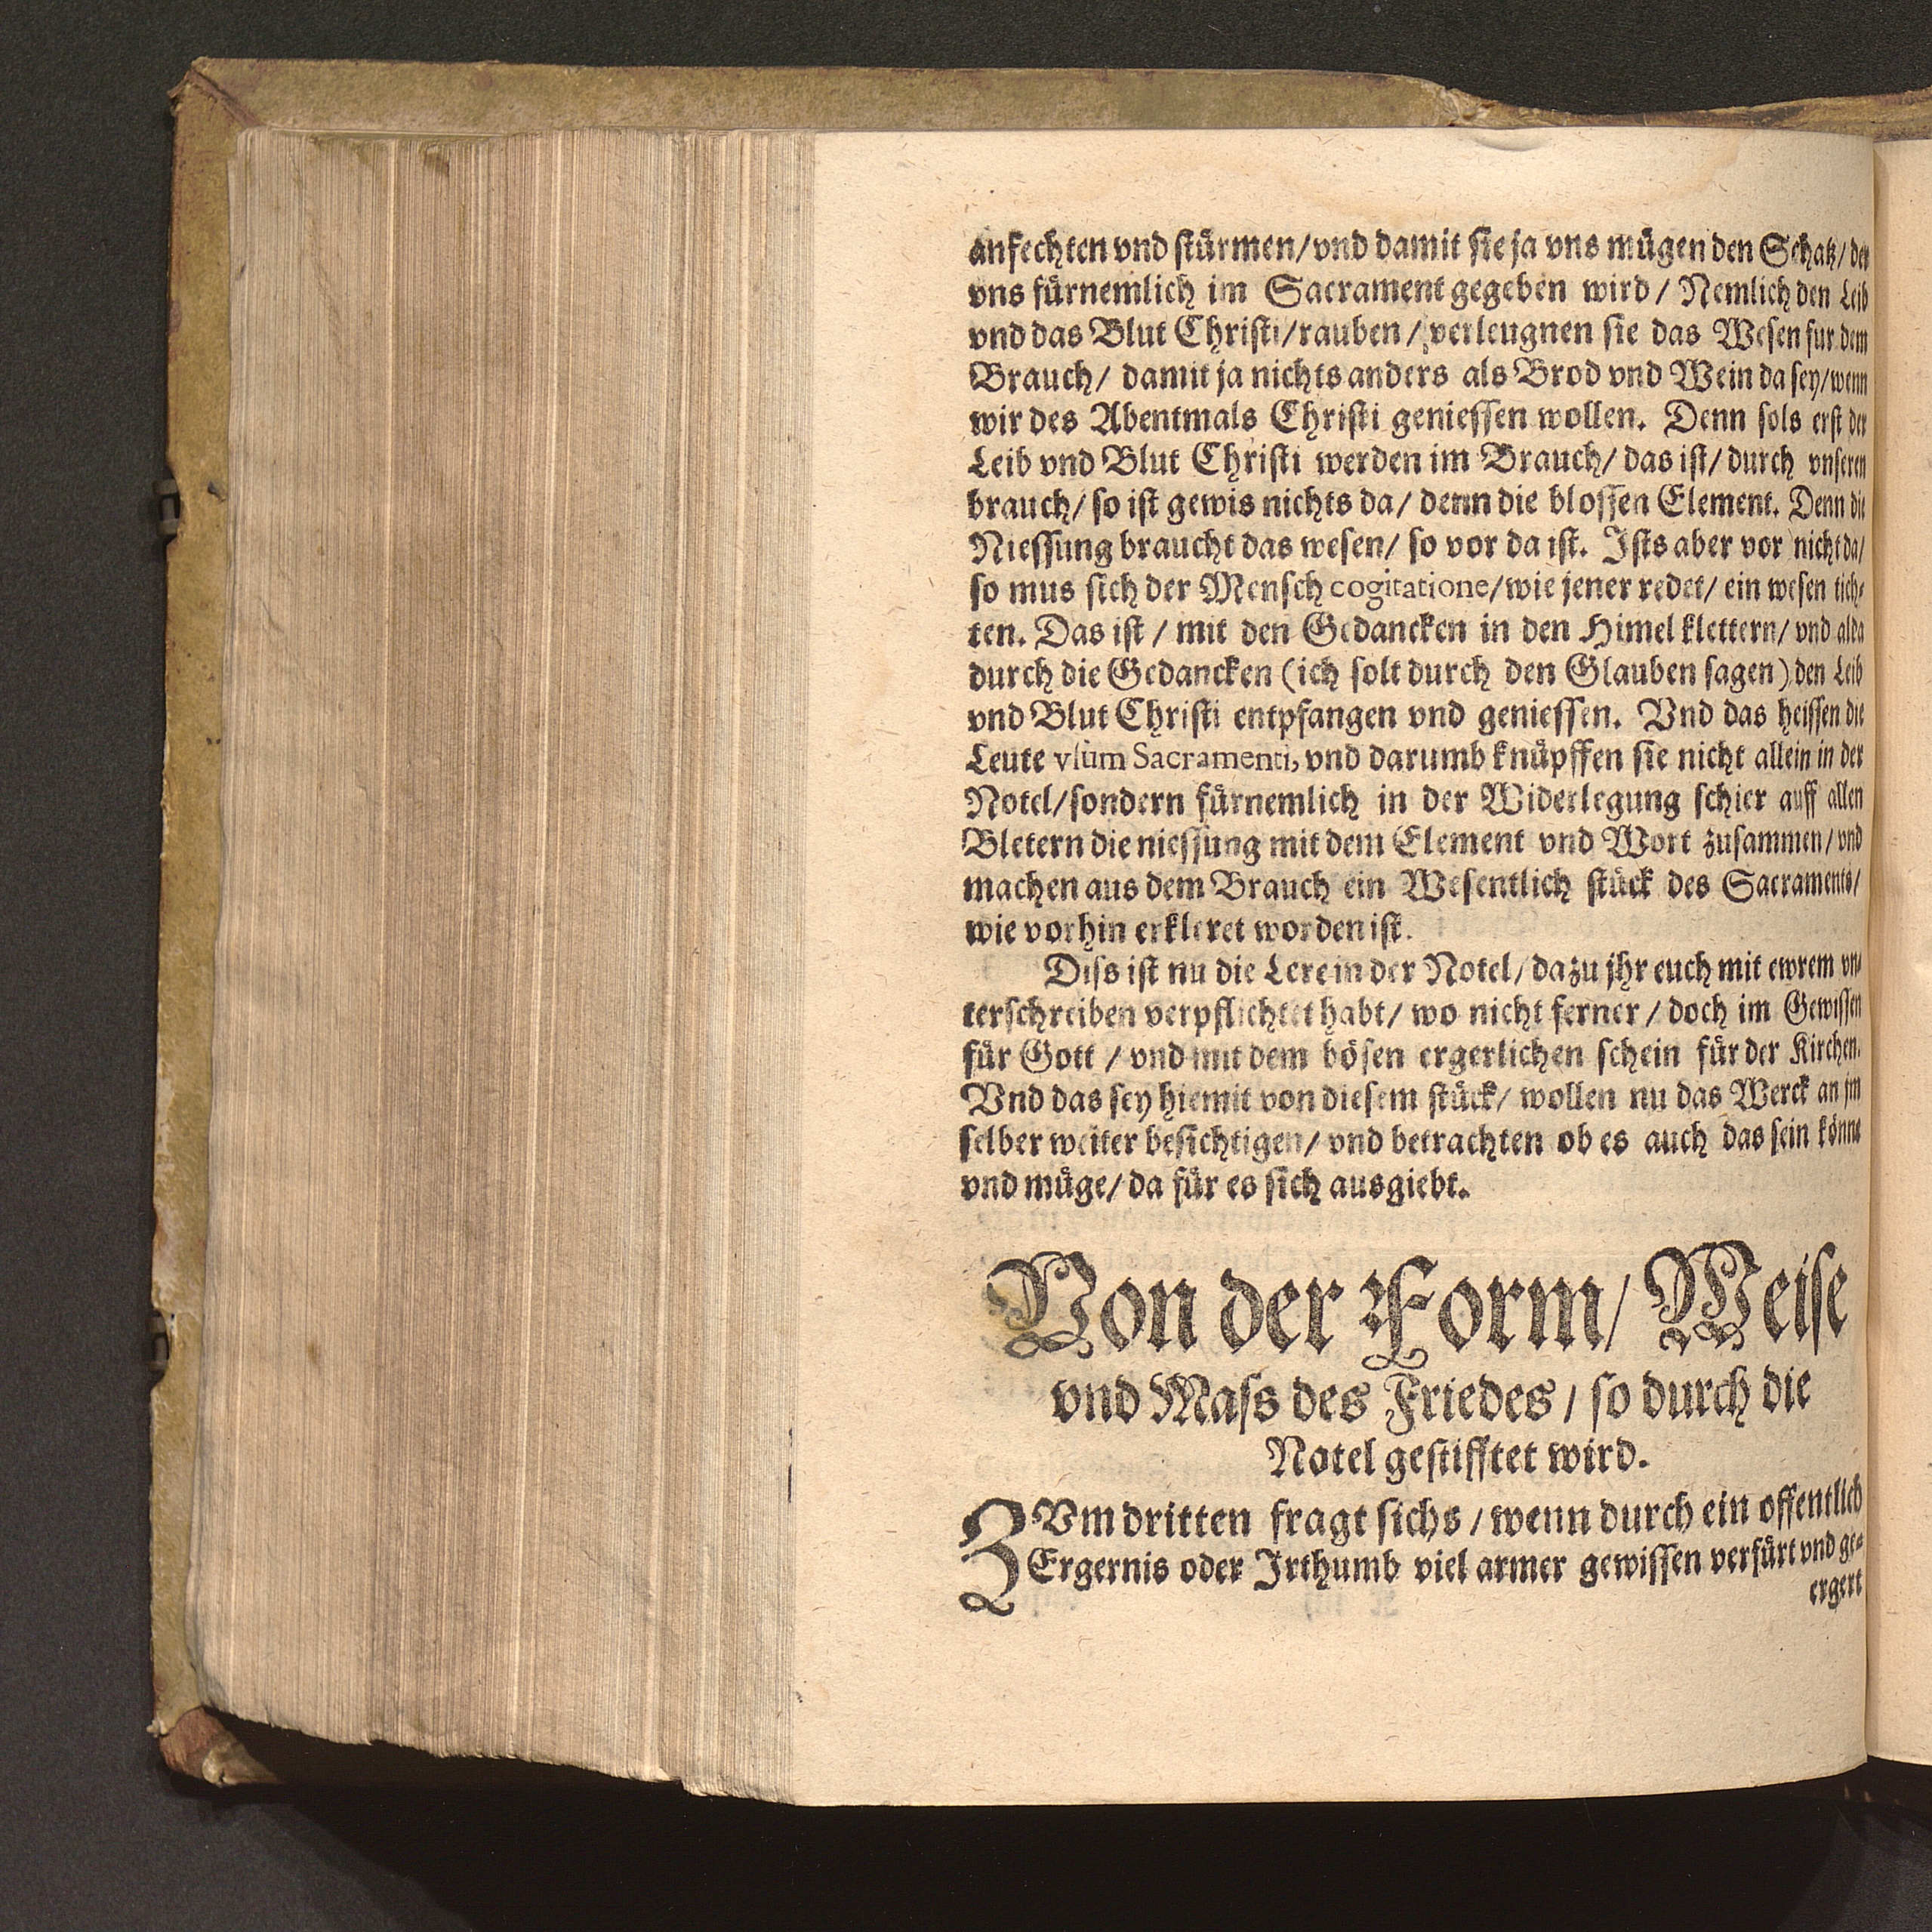 anfechten vnd stürmen/vnd damit sie ja vns mügen den Schatz/ der
vns fürnemlich im Sacrament gegeben wird/ Nemlich den Leib
vnd das Blut Christi/rauben/ verleugnen sie das Wesen fur dem
Brauch/ damit ja nichts anders als Brod vnd Wein da sey/wenn
wir des Abentmals Christi geniessen wollen. Denn sols erst der
Leib vnd Blut Christi werden im Brauch/ das ist/ durch vnseren
brauch/ so ist gewis nichts da/ denn die blossen Element. Denn die
Niessung braucht das wesen/ so vor da ist. Ists aber vor nicht da/
so mus sich der Mensch cogitatione/wie jener redet/ ein wesen tich-
ten. Das ist/ mit den Gedancken in den Himel klettern/ vnd alda
durch die Gedancken (ich solt durch den Glauben sagen) den Leib
vnd Blut Christi entpfangen vnd geniessen. Vnd das heissen die
Leute vsum Sacramenti, vnd darumb knüpffen sie nicht allein in der
Notel/sondern fürnemlich in der Widerlegung schier auff allen
Bletern die niessung mit dem Element vnd Wort zusammen/vnd
machen aus dem Brauch ein Wesentlich stück des Sacraments/
wie vorhin erkleret worden ist.
Diss ist nu die Lere in der Notel/ dazu jhr euch mit ewrem vn-
terschreiben verpflichtet habt/ wo nicht ferner/ doch im Gewissen
für Gott/ vnd mit dem bösen ergerlichen schein für der Kirchen.
Vnd das sey hiemit von diesem stück/ wollen nu das Werck an jm
selber weiter besichtigen/ vnd betrachten ob es auch das sein könne
vnd müge/ da für es sich ausgiebt.
Von der Form/ Weise
vnd Mass des Friedes/ so durch die
Notel gestifftet wird.
ZVm dritten fragt sichs/ wenn durch ein offentlich
Ergernis oder Irthumb viel armer gewissen verfürt vnd ge-
ergert